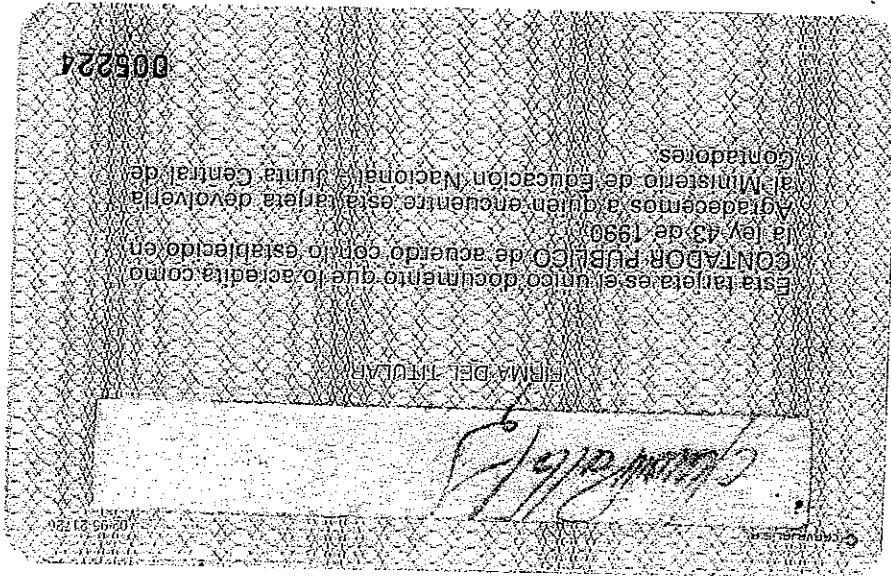 FIRMA DEL TITULAR
Esta tarjeta es el unico documento que lo acredita como
CONTADOR PUBLICO de acuerdo con lo establecido en
la ley 43 de 1990
Agradecemos a quien encuentre esta tarjeta devolverla
al Ministerio de Educacion Nacional - Junta Central de
Contadores
005224